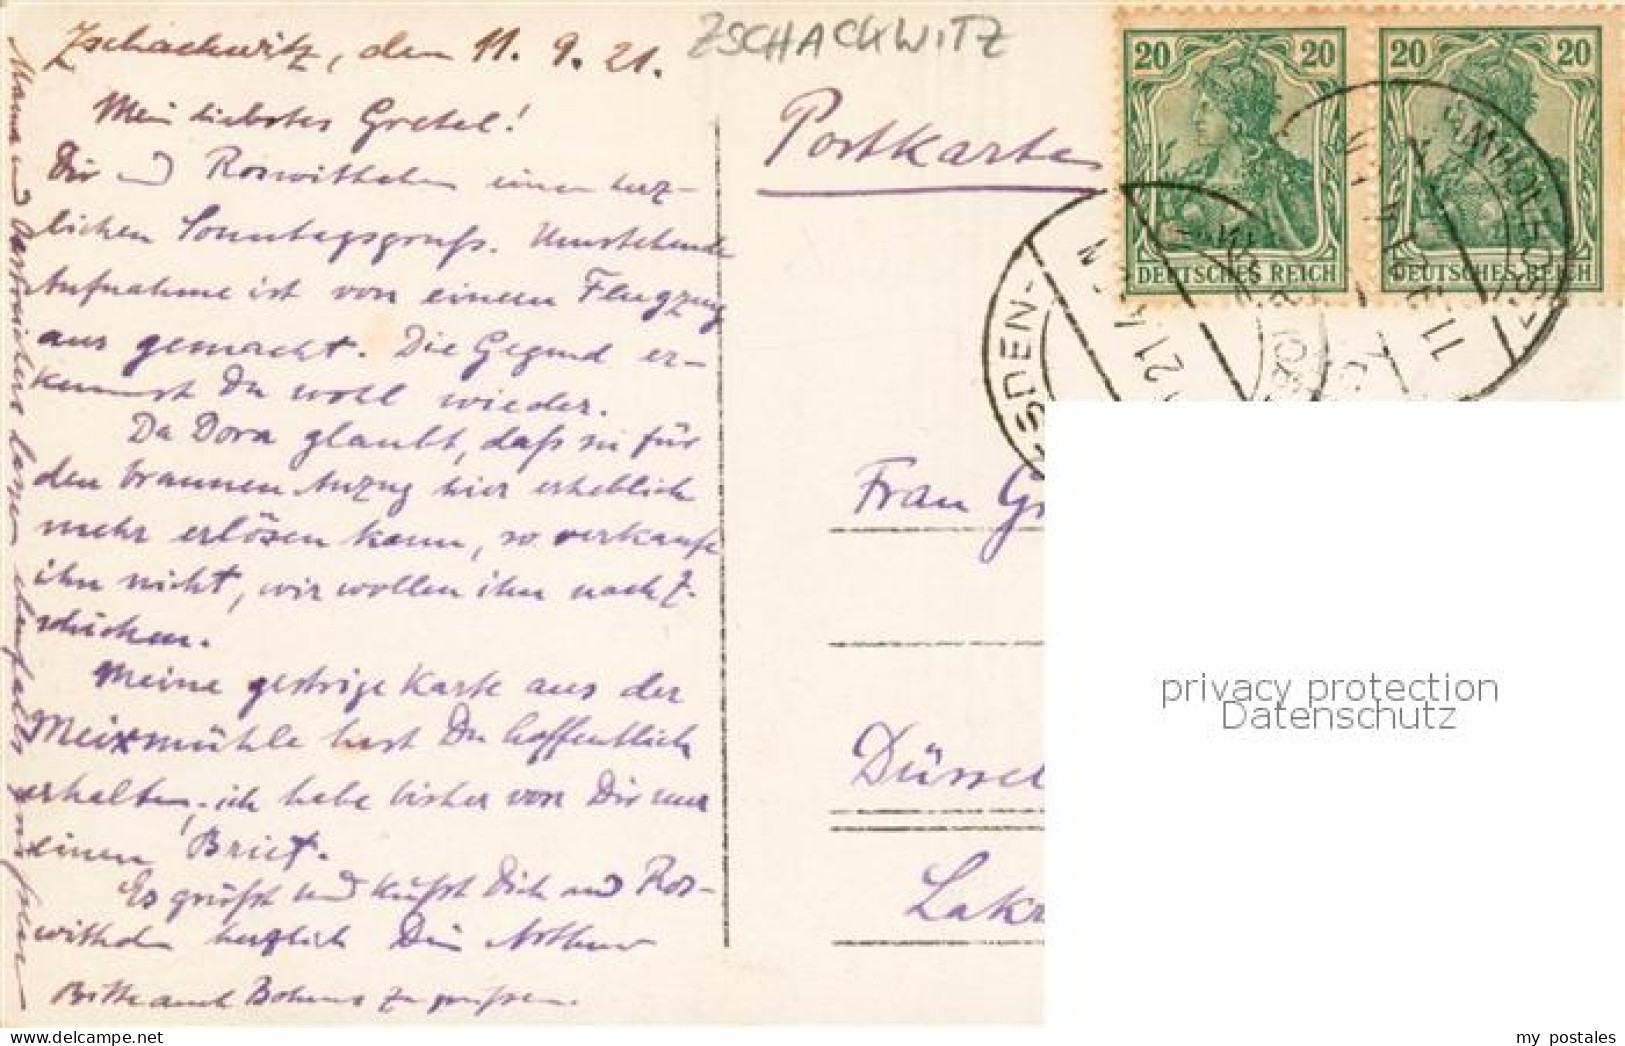 Zschackwitz, den 11. 9. 21.
ZSCHACKWITZ
Mein liebstes Gretel!
Dir und Roswithchen einen herz-
lichen Sonntagsgruß. Umstehende
Aufnahme ist von einem Flugzug
aus gemacht. Die Gegend er-
kennst Du wohl wieder.
Da Dora glaubt, daß sie für
den braunen Anzug hier erheblich
mehr erlösen kann, so verkaufe
ihn nicht, wir wollen ihn nach Z.
schicken.
Meine gestrige Karte aus der
Meixmühle hast Du hoffentlich
erhalten, ich habe bisher von Dir nur
einen Brief.
Es grüßt und küßt Dich und Ros-
withchen herzlich Dein Arthur
Bitte auch Bohms zu grüßen.
Mama und lassen ebenfalls grüßen
Postkarte
20 20
DEUTSCHES REICH
20 20
DEUTSCHES REICH
SDEN-
Frau Gr
Düssel
Lakr
privacy protection
Datenschutz
my postales